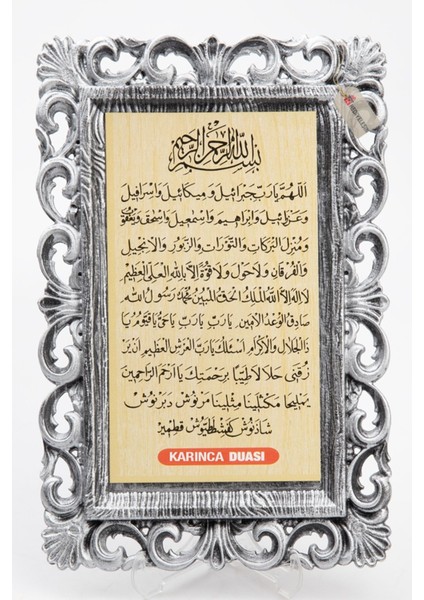 بسم الله الرحمن الرحيم
اللهم يارب جبرائيل وميكائيل واسرافيل
وعزرائيل وابراهيم واسمعيل واسحق ويعقوب
ومنزل البركات والتورات والزبور والانجيل
والفرقان ولاحول ولا قوة الا بالله العلي العظيم
لا اله الا الله الملك الحق المبين محمد رسول الله
صادق الوعد الامين يارب يارب ياحي ياقيوم يا
ذا الجلال والاكرام اسئلك يارب العرش العظيم ان يرـ
زقني حلالا طيبا برحمتك يا ارحم الراحمين
يمليخا مكثلينا مثلينا مرنوش دبرنوش
شاذنوش كفشططيوش قطمير
KARINCA DUASI